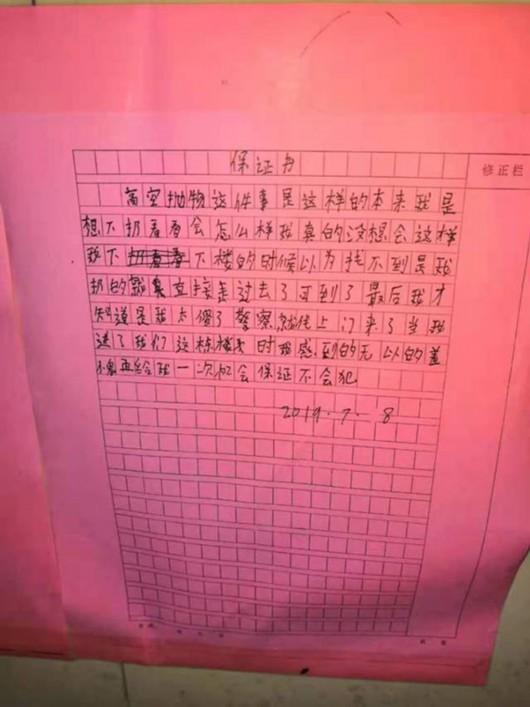 保证书
修正栏
高空抛物这件事是这样的本来我是
想下扔看看会怎么样我真的没想会这样
我下下楼的时候以为找不到是我
扔的就直接走过去了可到了最后我才
知道是我太傻了警察就找上门来了当我
进了我们这栋楼时我感到的无以的羞
愧再给我一次机会保证不会犯
2019.7.8